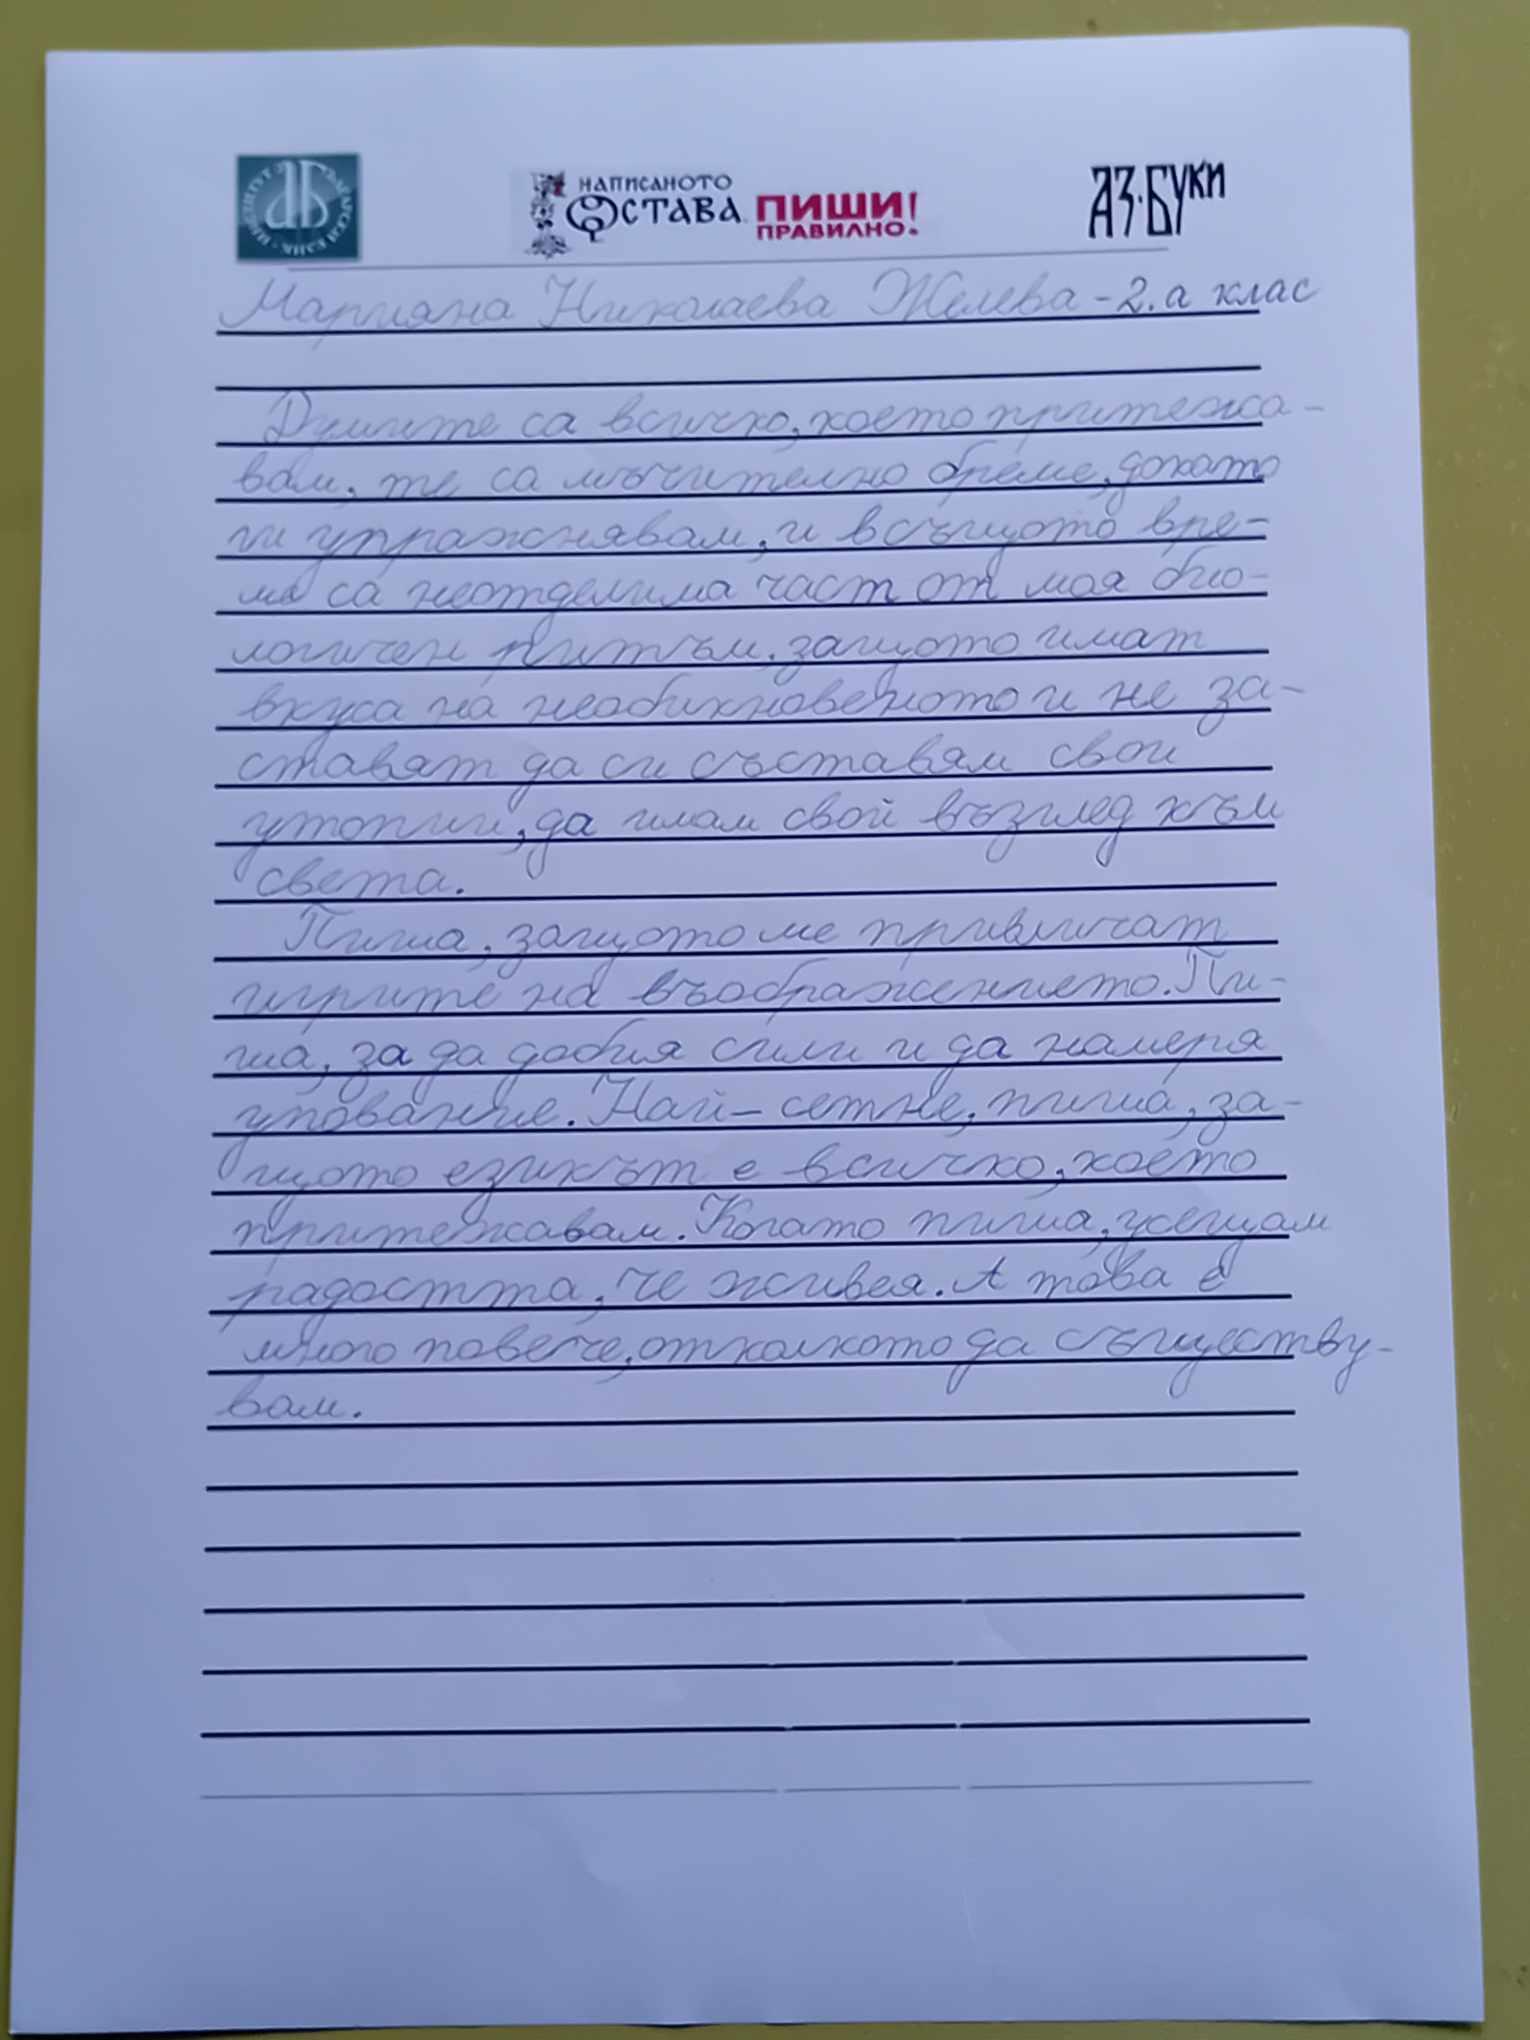 НАПИСАНОТО
ОСТАВА. ПИШИ!
ПРАВИЛНО.
АЗ·БУКИ
Марияна Николаева Желева - 2. а клас
Думите са всичко, което притежа-
вам, те са мъчително бреме, докато
ги упражнявам, и в същото вре-
ме са неотделима част от моя био-
логичен ритъм, защото имат
вкуса на необикновеното и ме за-
ставят да си съставям свои
утопии, да имам свой възглед към
света.
Пиша, защото ме привличат
игрите на въображението. Пи-
ша, за да добия сили и да намеря
упование. Най-сетне, пиша, за-
щото езикът е всичко, което
притежавам. Когато пиша, усещам
радостта, че живея. А това е
много повече, отколкото да съществу-
вам.